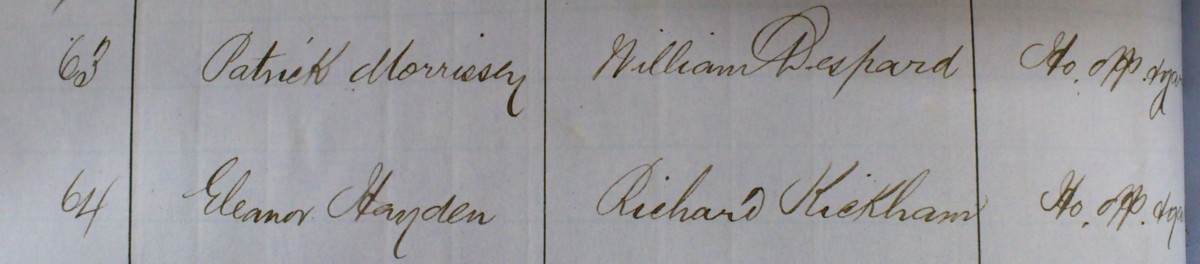 63 Patrick Morrissey William Despard Ho. off.
64 Eleanor Hayden Richard Kickham Ho. off.